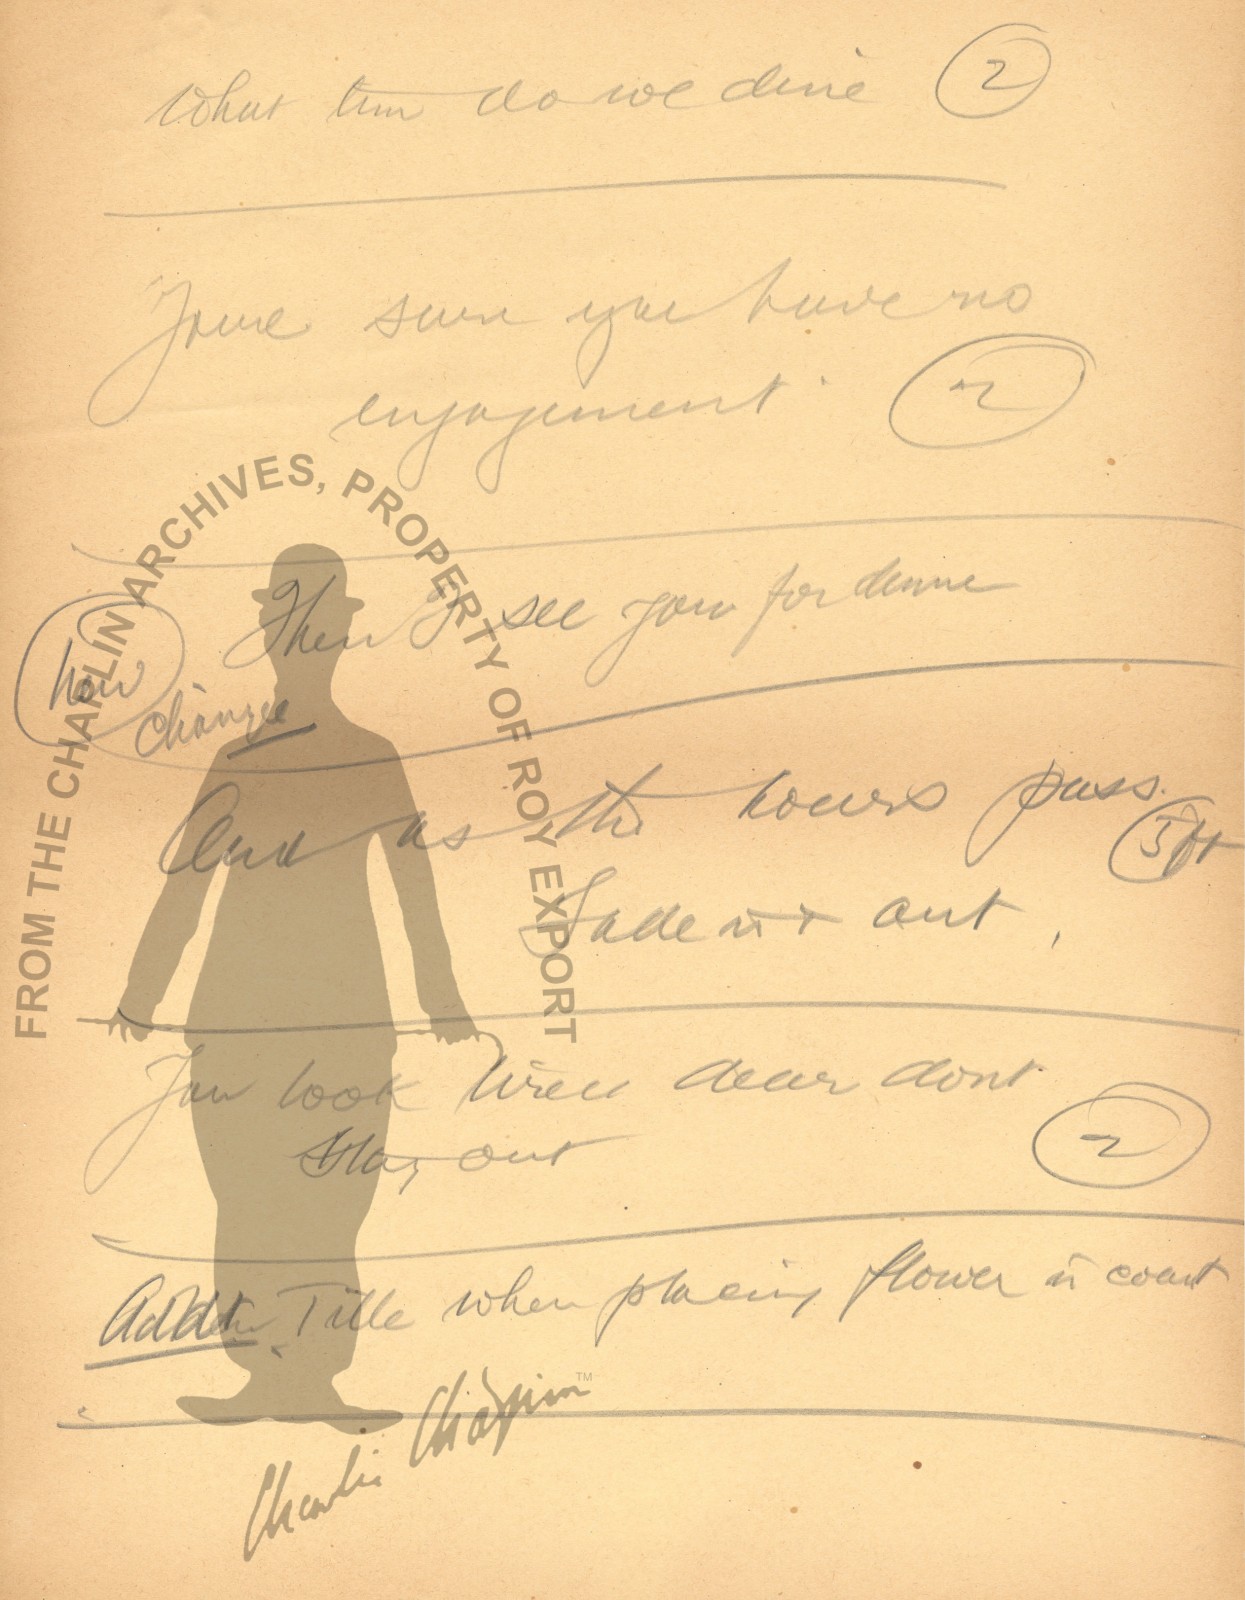 What time do we dine 2
Youre sure you have no
engagement 2
Then I see you for dinner
how
change
And as the hours pass.
5 ft
Fade in + out.
You look tired dear dont
stay out 2
Title when placing flower in coat
FROM THE CHAPLIN ARCHIVES, PROPERTY OF ROY EXPORT
Charlie Chaplin™